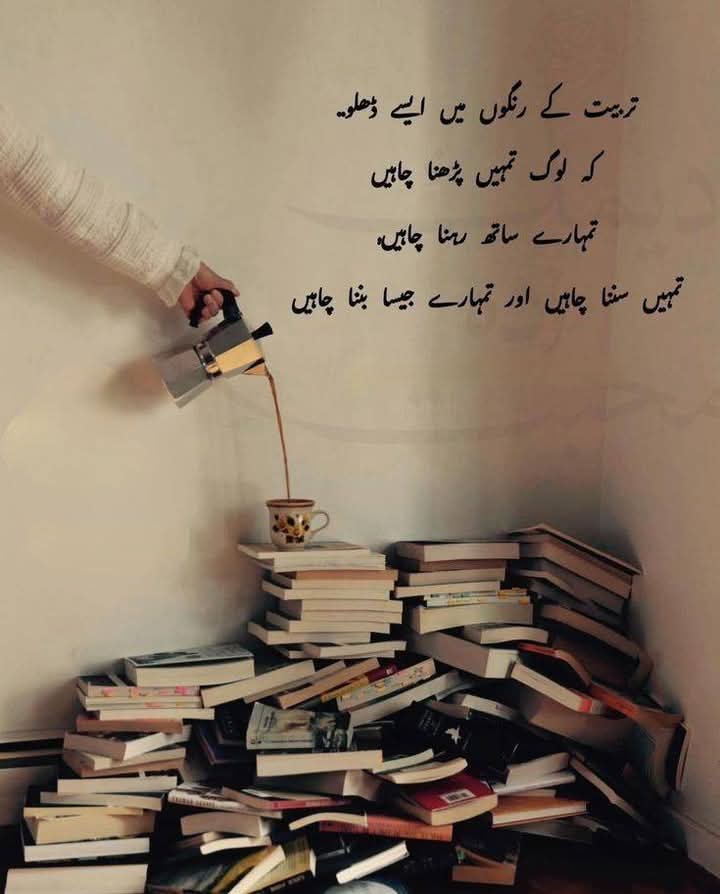 تربیت کے رنگوں میں ایسے ڈھلو..
کہ لوگ تمہیں پڑھنا چاہیں
تمہارے ساتھ رہنا چاہیں،
تمہیں سننا چاہیں اور تمہارے جیسا بننا چاہیں